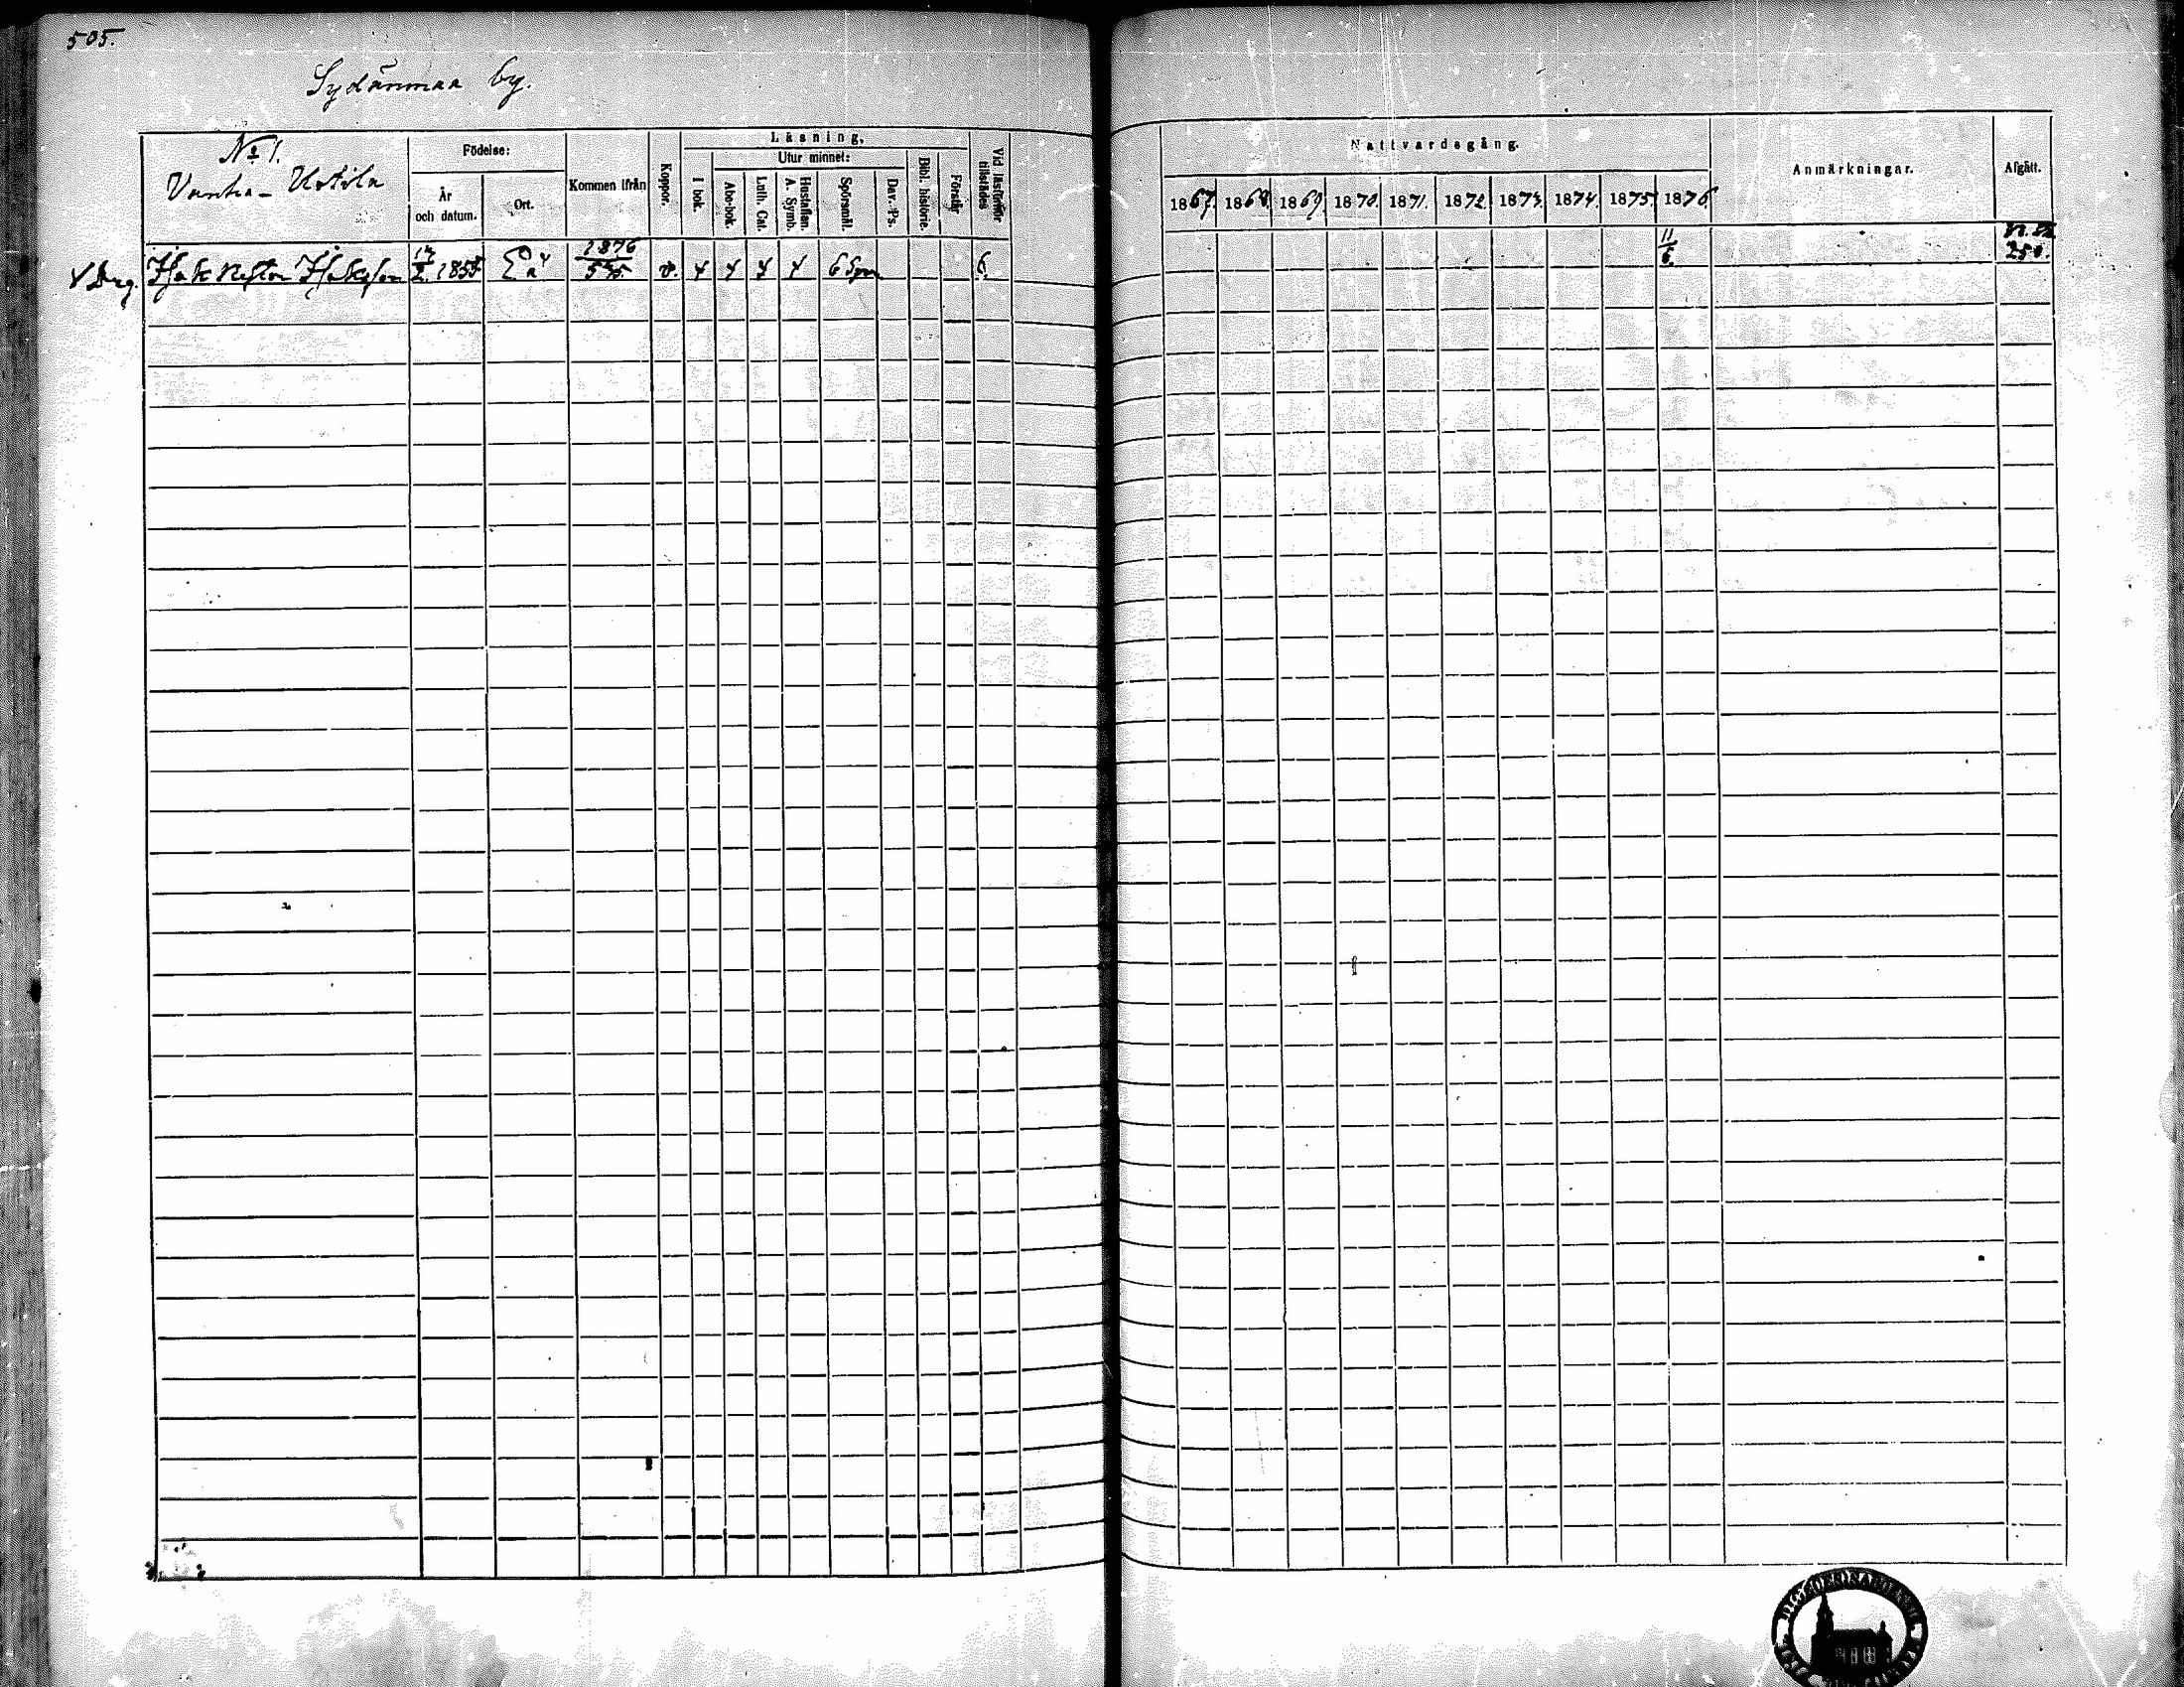 505.
Sydänmaa by.
No 1.
Vanha- Ustila
Födelse:
År och datum.
Ort.
Kommen ifrån
Koppor.
Läsning,
I bok.
Utur minnet:
Abo-bok.
Luth. Cat.
Hustaflan. A. Symb.
Spörsmål.
Dav. Ps.
Bibl. historie.
Förstår
Vid läsförhör tillstädes
Nattvardsgång.
1867.
1868.
1869.
1870.
1871.
1872.
1873.
1874.
1875.
1876.
Anmärkningar.
Afgått.
Drg. Isak Isaksson
2. 1855
1876
v. 4 4 4 4
6.
11
6.
250.